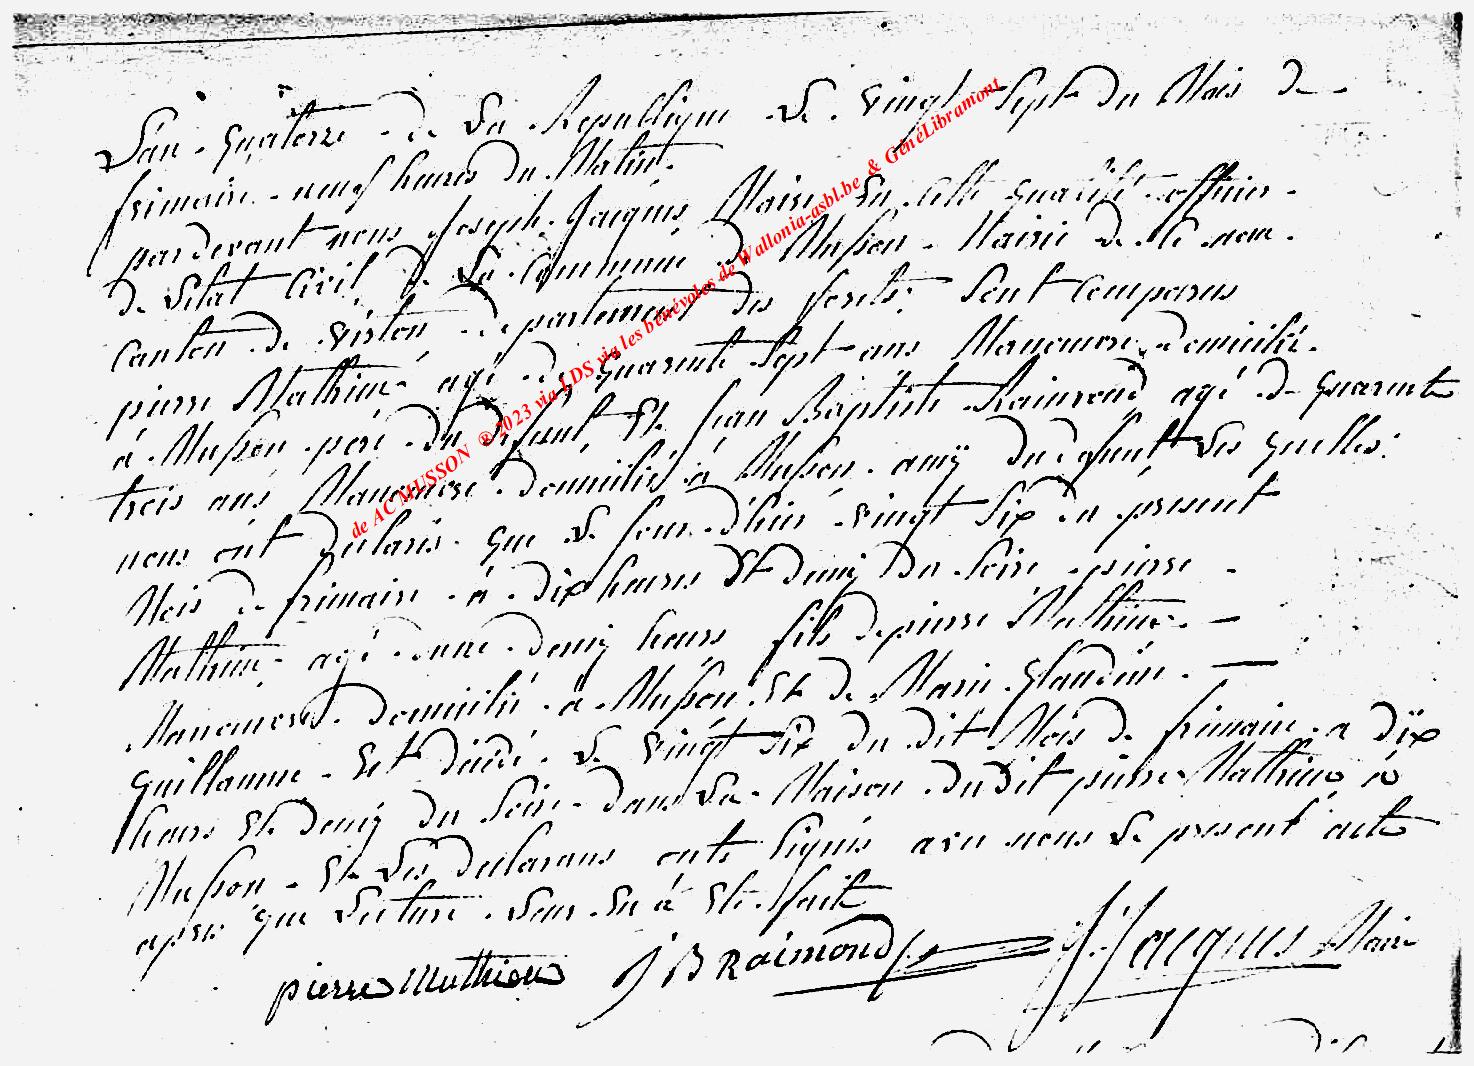 L'an quaterze de La Republique Le vingt Sept du Mois de
frimaire neuf heures du Matin
pardevant nous Joseph Jacques Maire En cette qualité officier
de L'etat Civil de La Commune de Musson Mairie de ce nom
Canton de virton departement des forets Sont Comparus
pierre Mathieu agé de quarente Sept ans Manoeuvre domicilié
à Musson pere du defunt Et Jean Baptiste Raimond agé de quarente
trois ans Manoeuvre domicilié à Musson amÿ du defunt Les quelles
nous ont declaris que Le Jour d'hier vingt Six du present
Mois de frimaire à dix heures Et demÿ du Soire pierre
Mathieu agé onne demÿ heurs fils de pierre Mathieu
Manoeuvre domicilié à Musson Et de Marie Glaudine
Guillaume Est decédé Le vingt Six du dit Mois de frimaire a dÿx
heurs Et demÿ du Soire dans La Maison du dit pierre Mathieu à
Musson Et Les declarans onts signés avu nous Le present acte
apres que Lecture Leur En à Eté fait
pierre Mathieu J B RAimond J. Jacques Maire
de ACMUSSON ® 2023 via LDS via les bénévoles de Wallonia-asbl.be & GenéLibramont